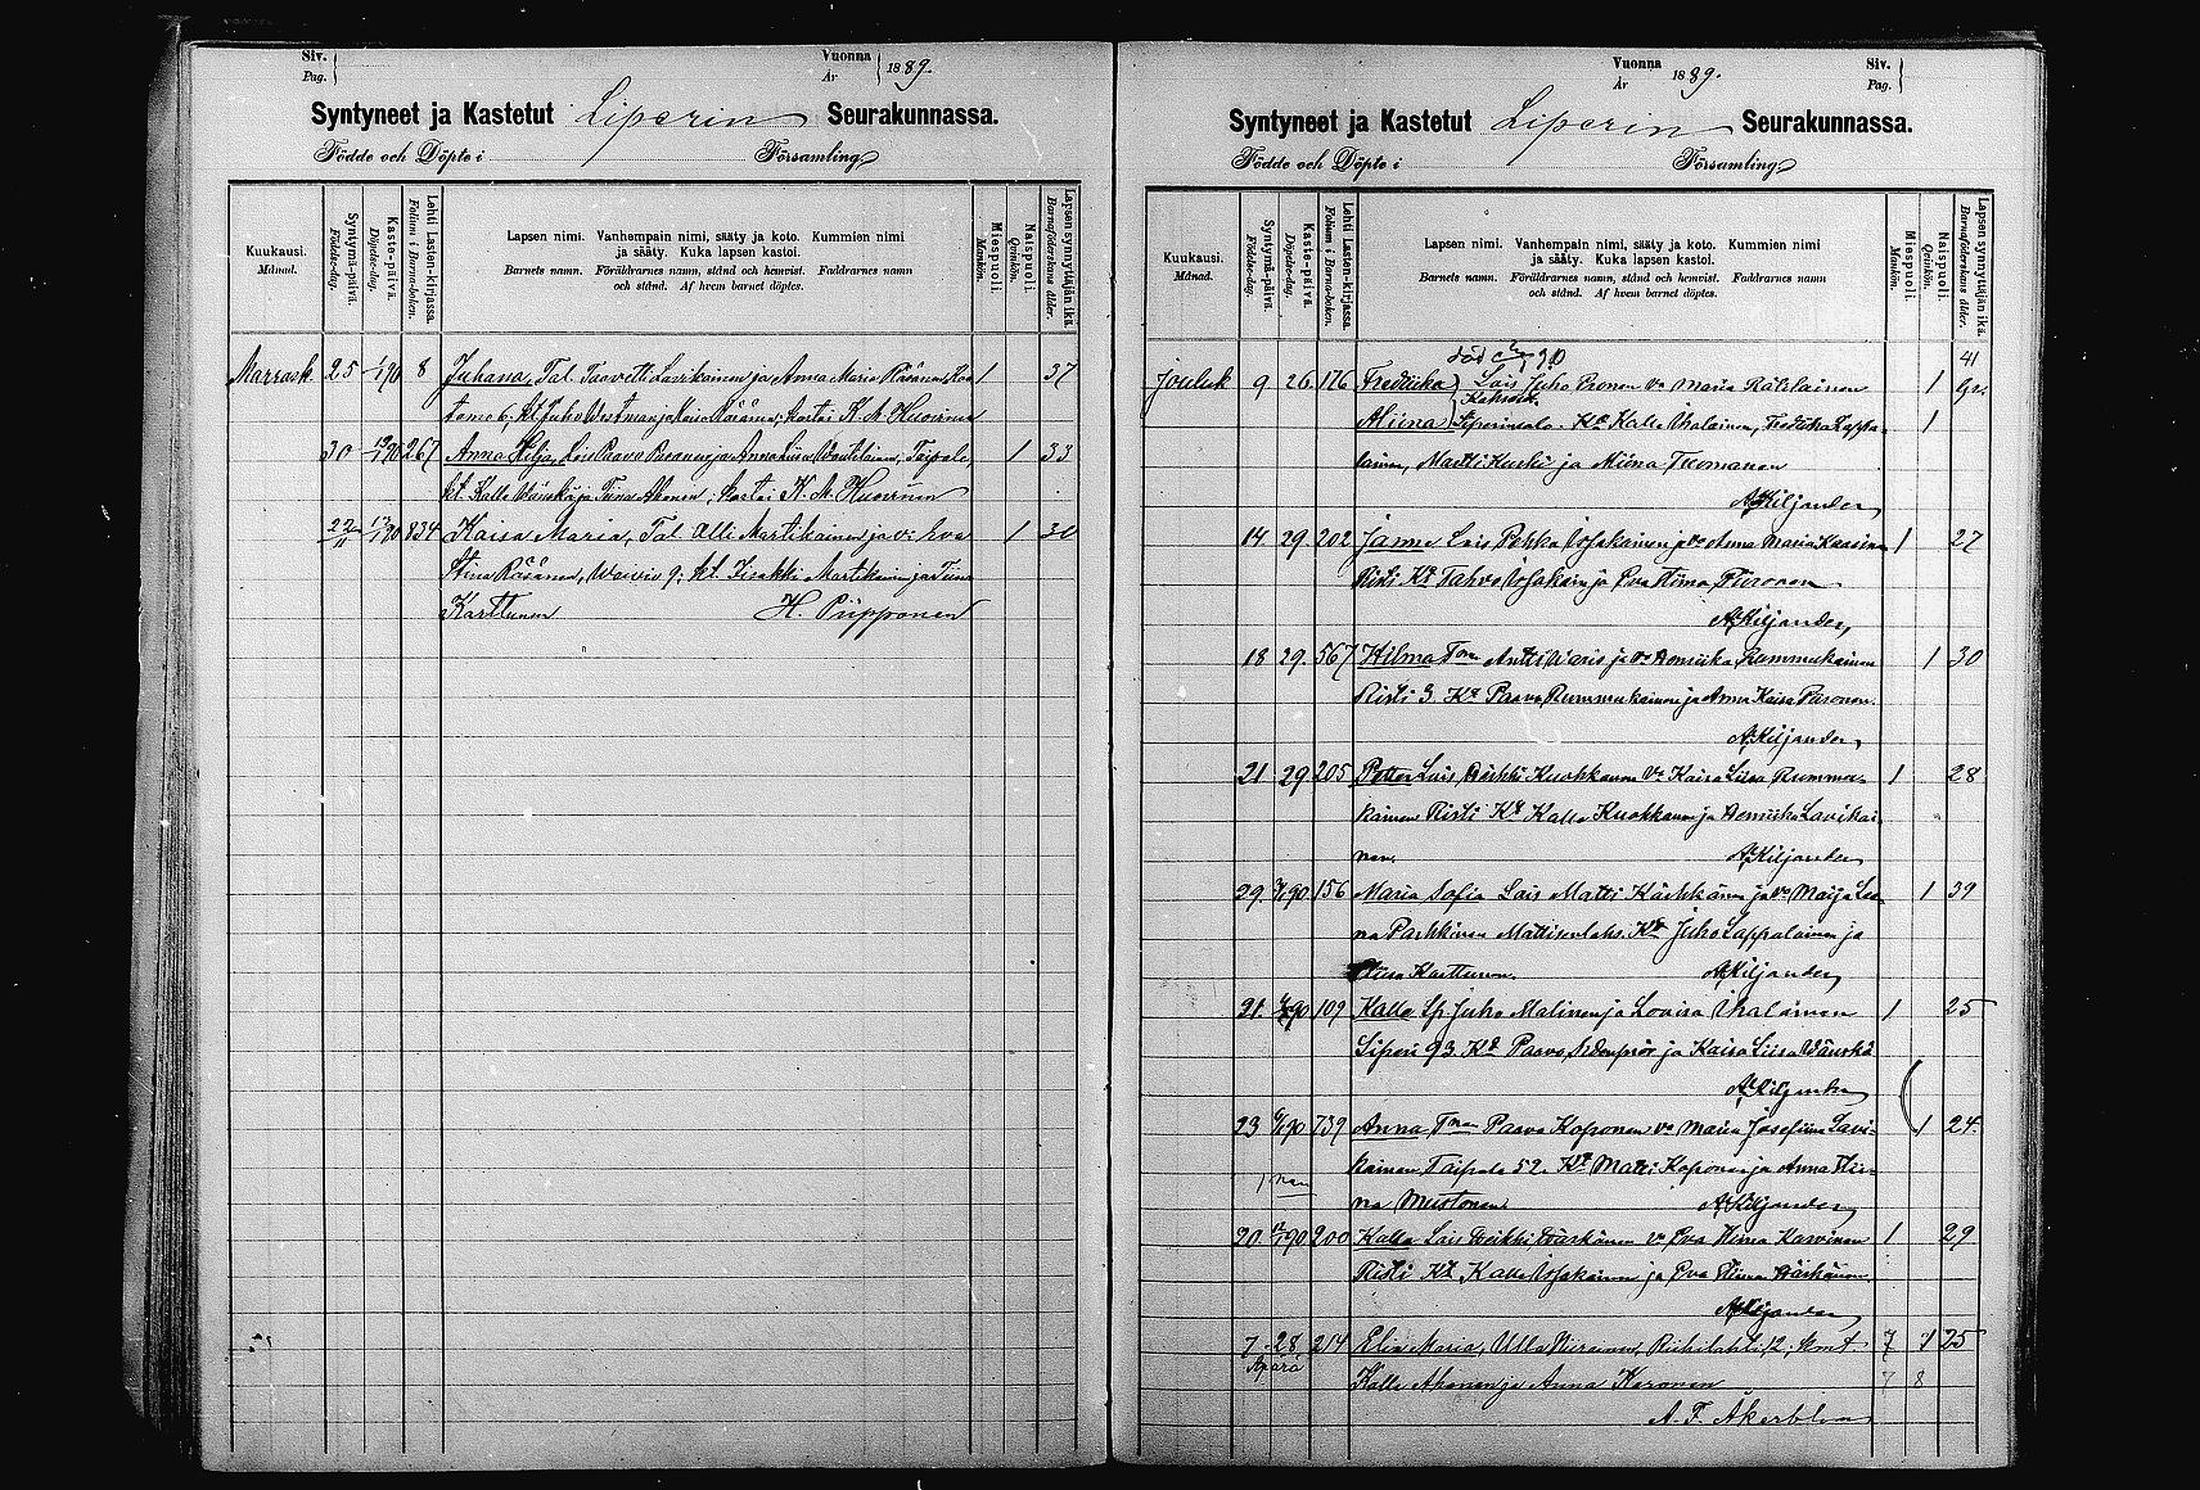 Siv. Vuonna
Pag. År 1889.
Syntyneet ja Kastetut Liperin Seurakunnassa.
Födde och Döpte i Församling
Kuukausi.
Månad.
Syntymä-päivä.
Födelse-dag.
Kaste-päivä.
Döpelse-dag.
Lehti Lasten-kirjassa.
Folium i Barna-boken.
Lapsen nimi. Vanhempain nimi, sääty ja koto. Kummien nimi
ja sääty. Kuka lapsen kastoi.
Barnets namn. Föräldrarnes namn, stånd och hemvist. Faddrarnes namn
och stånd. Af hvem barnet döptes.
Miespuoli.
Mankön.
Naispuoli.
Qvinkön.
Lapsen synnyttäjän ikä.
Barnaföderskans ålder.
Marrask. 25 1/1 90 8 Juhana, Tal. Taavetti Lavikainen ja Anna Maria Räsänen, 1 37
tamo 6; kt. Juho Westman ja Räsänen; kastoi K. A. Huovinen
30 19/1 90 267 Anna Hilja, Lois Paavo ja Anna Liisa Taipale, 1 33
kt. Kalle Wänskä ja Tiina Ahonen; kastoi K. A. Huovinen
22/11 90 834 Kaisa Maria, Tal. Olli Martikainen ja v: Eva 1 30
Stina Räsänen, Waivio 9; kt. Iisakki Martikainen ja Tiina
Karttunen H. Piipponen
Vuonna Siv.
År 1889. Pag.
Syntyneet ja Kastetut Liperin Seurakunnassa.
Födde och Döpte i Församling
Kuukausi.
Månad.
Syntymä-päivä.
Födelse-dag.
Kaste-päivä.
Döpelse-dag.
Lehti Lasten-kirjassa.
Folium i Barna-boken.
Lapsen nimi. Vanhempain nimi, sääty ja koto. Kummien nimi
ja sääty. Kuka lapsen kastoi.
Barnets namn. Föräldrarnes namn, stånd och hemvist. Faddrarnes namn
och stånd. Af hvem barnet döptes.
Miespuoli.
Mankön.
Naispuoli.
Qvinkön.
Lapsen synnyttäjän ikä.
Barnaföderskans ålder.
död 90 41
Jouluk 9 26. 176 Frediika Lois Juho Pronen Va Maria Räihläinen 1
Kaksoset.
Miina Liperinsalo. Kt Kalle Ihalainen, Fredika Lappa- 1
lainen, Martti Kuski ja Miina Tuomanen
A Kiljander
14. 29. 202 Janne Lois Pekka Issakainen ja va Anna Maria Kaasinen 1 27
Risti Kt Tahvo Issakain ja Eva Stina Tiironen
A Kiljander,
18 29. 567 Hilma Tman Antti Waris ja va Henriika Rummukainen 1 30
Risti 3. Kt Paavo Rummukainen ja Anna Kaisa Paronen.
A Kiljander,
21 29 205 Petter Lois Heikki Kuokkanen Va Kaisa Liisa Rummu- 1 28
kainen Risti Kt Kalle Kuokkanen ja Henriika Lavikai-
nen. A Kiljander
29. 90. 156 Maria Sofia Lois Matti Kärkkänen ja va Maija Lee- 1 39
na Parkkinen Mattisenlahti. Kt Juho Lappalainen ja
Stiina Karttunen. A Kiljander
21. 90 109 Kalle Lp. Juho Malinen ja Lovisa Ihalainen 1 25
Liperi 93. Kt Paavo ja Kaisa Liisa Wänskä
A Kiljander
23 6/1 90 739 Anna Tman Paavo Koponen va Maria Josefiina Lavi- 1 24.
kainen, Taipale 52. Kt Matti Koponen ja Anna Stii-
na Mustonen. A Kiljander
20. 12/1 90 200 Kalle Lois Heikki Kärkänen va Eva Stiina Karvinen 1 29
Risti Kt Kalle Issakainen ja Eva Stiina Kärkänen.
A Kiljander
7. 28 214 Elin Maria, Ulla Riihilahti 12; kmt 7 1 25
Äpärä
Kalle Ahonen ja Anna Karonen 7 8
A. F. Åkerblom